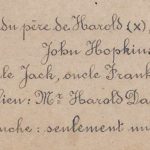 du père de Harold (x),
John Hopkins
le Jack, oncle Frank
ien: Mr Harold Da
uche: seulement un